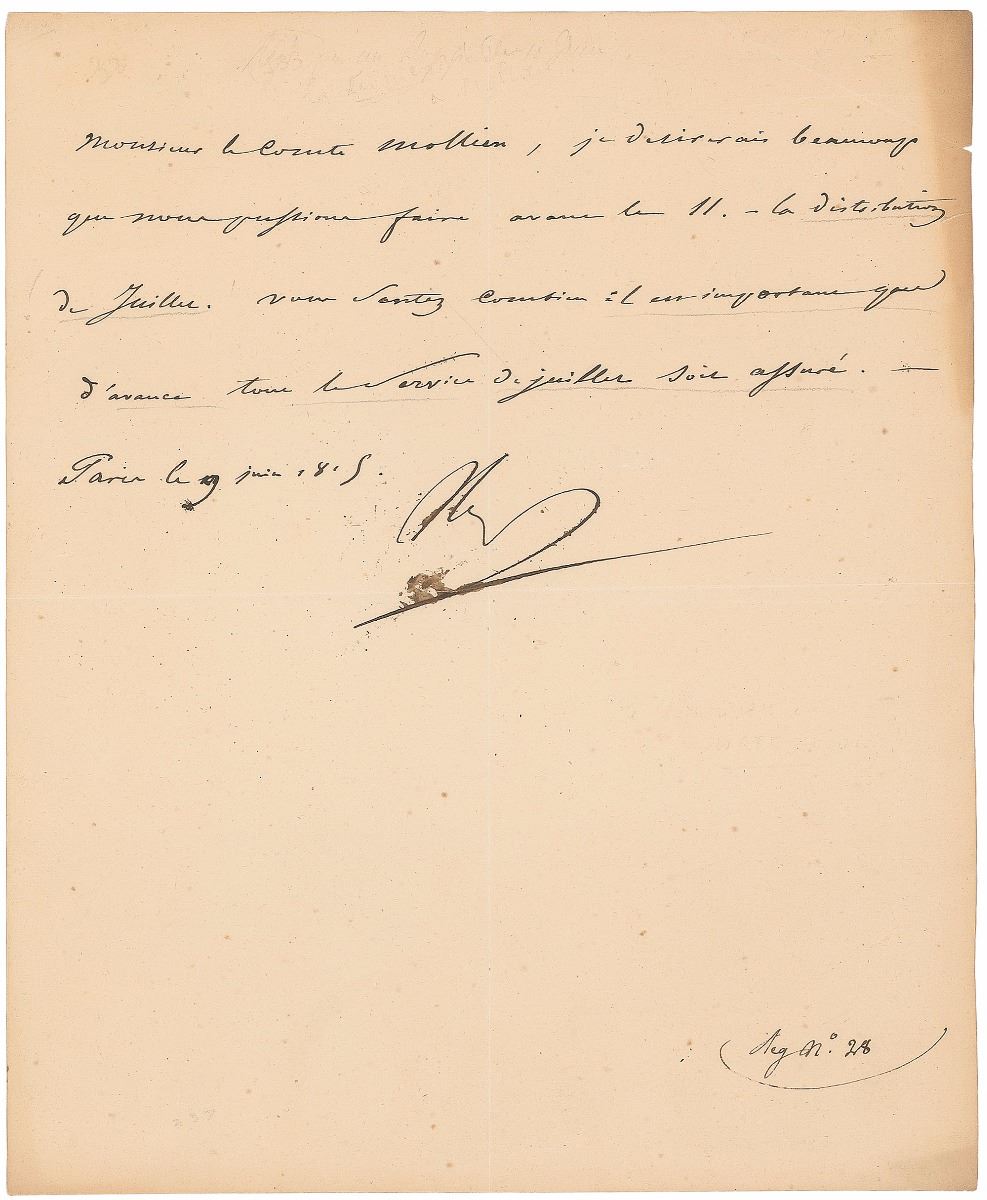 Monsieur le Comte Mollien, je desirerais beaucoup
que nous pussions faire avant le 11. - la distribution
de Juillet. vous sentez combien il est important que
d'avance tout le service de juillet soit assuré. —
Paris le 9 juin 1815.
Reg N.° 28